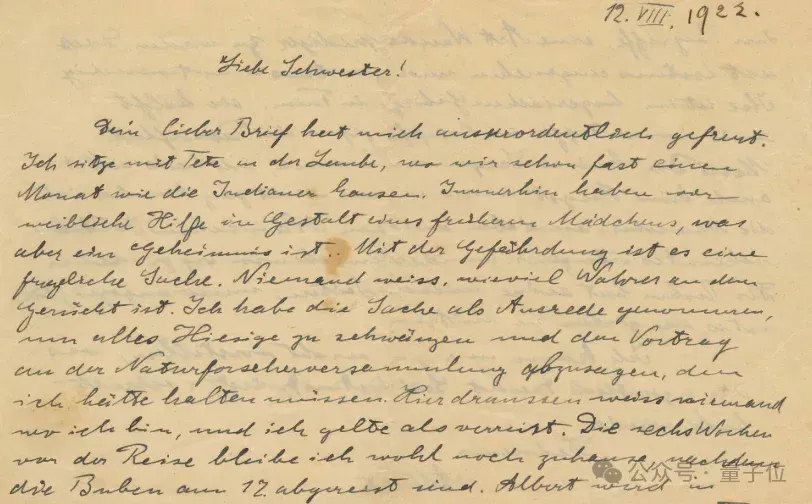 12. VIII. 1922.
Liebe Schwester!
Dein lieber Brief hat mich ausserordentlich gefreut.
Ich sitze mit Tete in der Laube, wo wir schon fast einen
Monat wie die Indianer hausen. Immerhin haben wir
weibliche Hilfe in Gestalt eines früheren Mädchens, was
aber ein Geheimnis ist. Mit der Gefährdung ist es eine
fragliche Sache. Niemand weiss, wieviel Wahres an dem
Gerücht ist. Ich habe die Sache als Ausrede genommen,
um alles Hiesige zu schwänzen und den Vortrag
an der Naturforscherversammlung abzusagen, den
ich hätte halten müssen. Hier draussen weiss niemand
wo ich bin, und ich gelte als verreist. Die sechs Wochen
vor der Reise bleibe ich wohl noch zuhause, nachdem
die Buben am 17. abgereist sind. Albert wird in
公众号 · 量子位